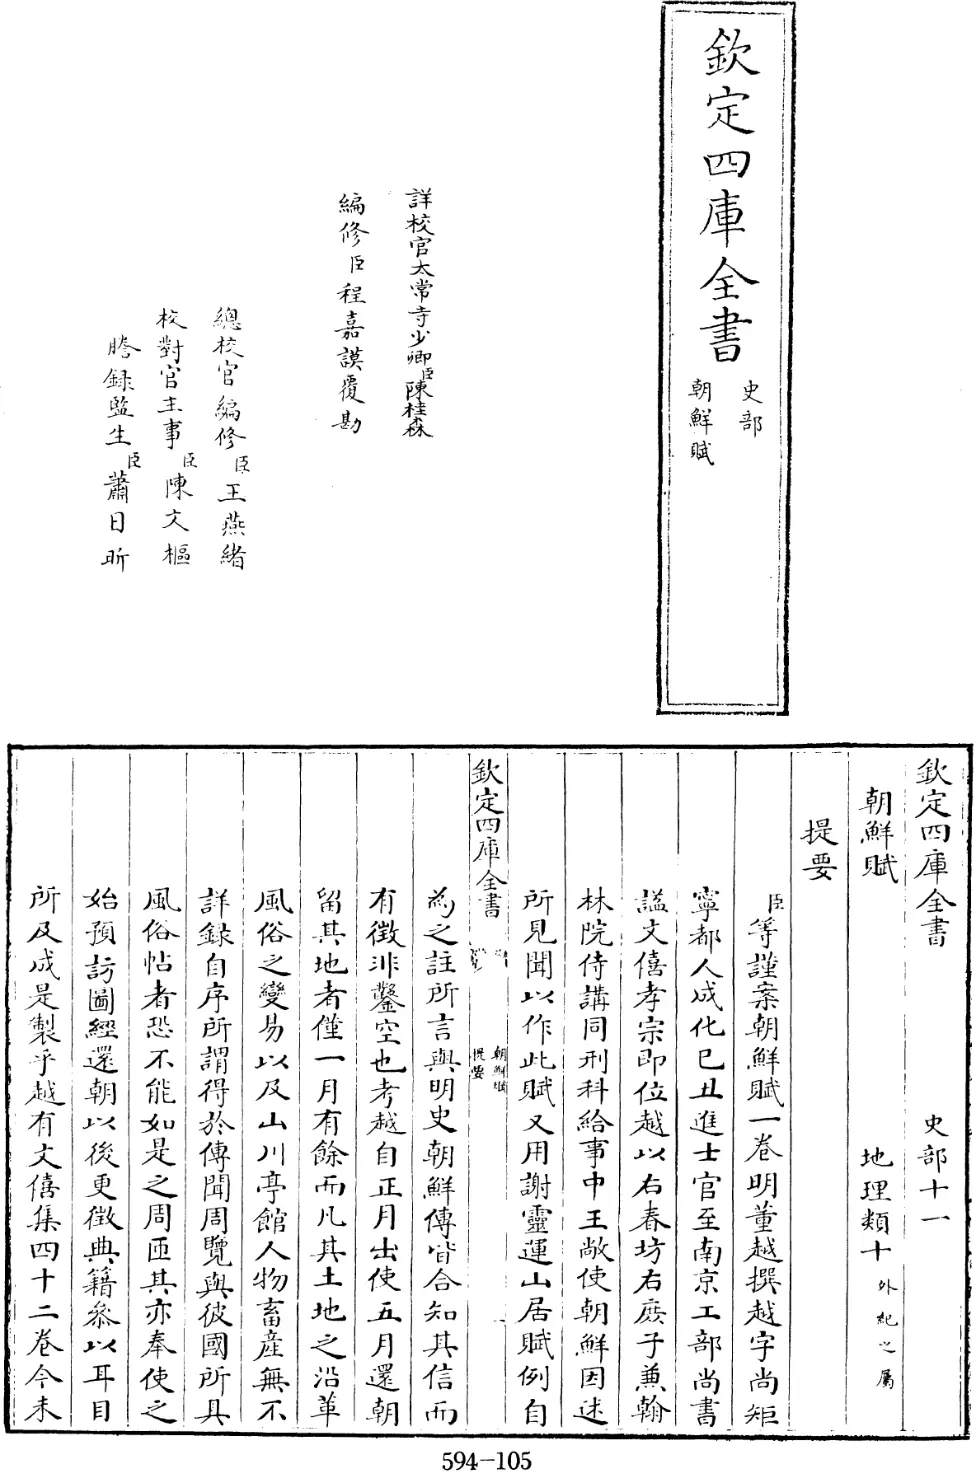 欽定四庫全書
史部
朝鮮賦
詳校官太常寺少卿臣陳桂森
編修臣程嘉謨覆勘
總校官編修臣王燕緒
校對官主事臣陳文樞
謄錄監生臣蕭日昕
欽定四庫全書 史部十一
朝鮮賦 地理類十外紀之屬
提要
臣等謹案朝鮮賦一卷明董越撰越字尚矩
寧都人成化己丑進士官至南京工部尚書
謚文僖孝宗即位越以右春坊右庶子兼翰
林院侍講同刑科給事中王敞使朝鮮因述
所見聞以作此賦又用謝靈運山居賦例自
欽定四庫全書
朝鮮賦
提要
為之註所言與明史朝鮮傳皆合知其信而
有徵非鑿空也考越自正月出使五月還朝
留其地者僅一月有餘而凡其土地之沿革
風俗之變易以及山川亭館人物畜產無不
詳錄自序所謂得於傳聞周覽與彼國所具
風俗帖者恐不能如是之周匝其亦奉使之
始預訪圖經還朝以後更徵典籍叅以耳目
所及成是製乎越有文僖集四十二卷今未
594-105